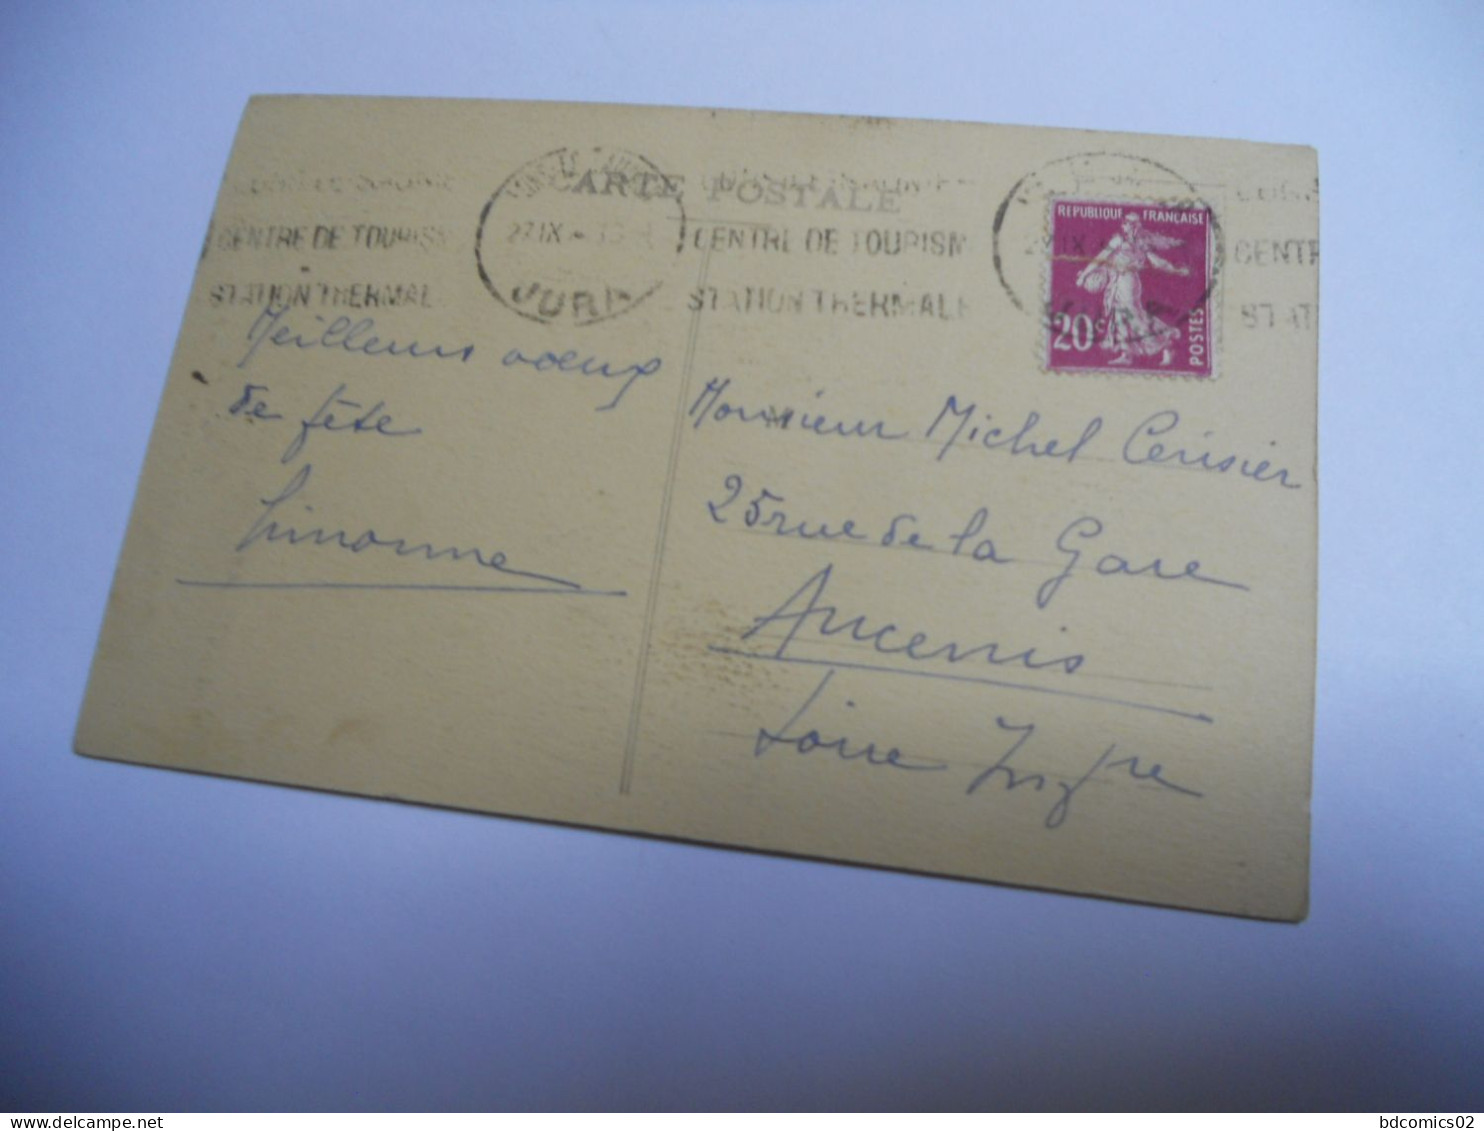 CARTE POSTALE
CENTRE DE TOURISM
STATION THERMALE
27 IX
JURA
CENTRE DE TOURISM
STATION THERMALE
CENTR
STATI
REPUBLIQUE FRANÇAISE
20c
POSTES
Meilleurs voeux
de fête
Simonne
Monsieur Michel Cerisier
25 rue de la Gare
Ancenis
Loire Infre
bdcomics02